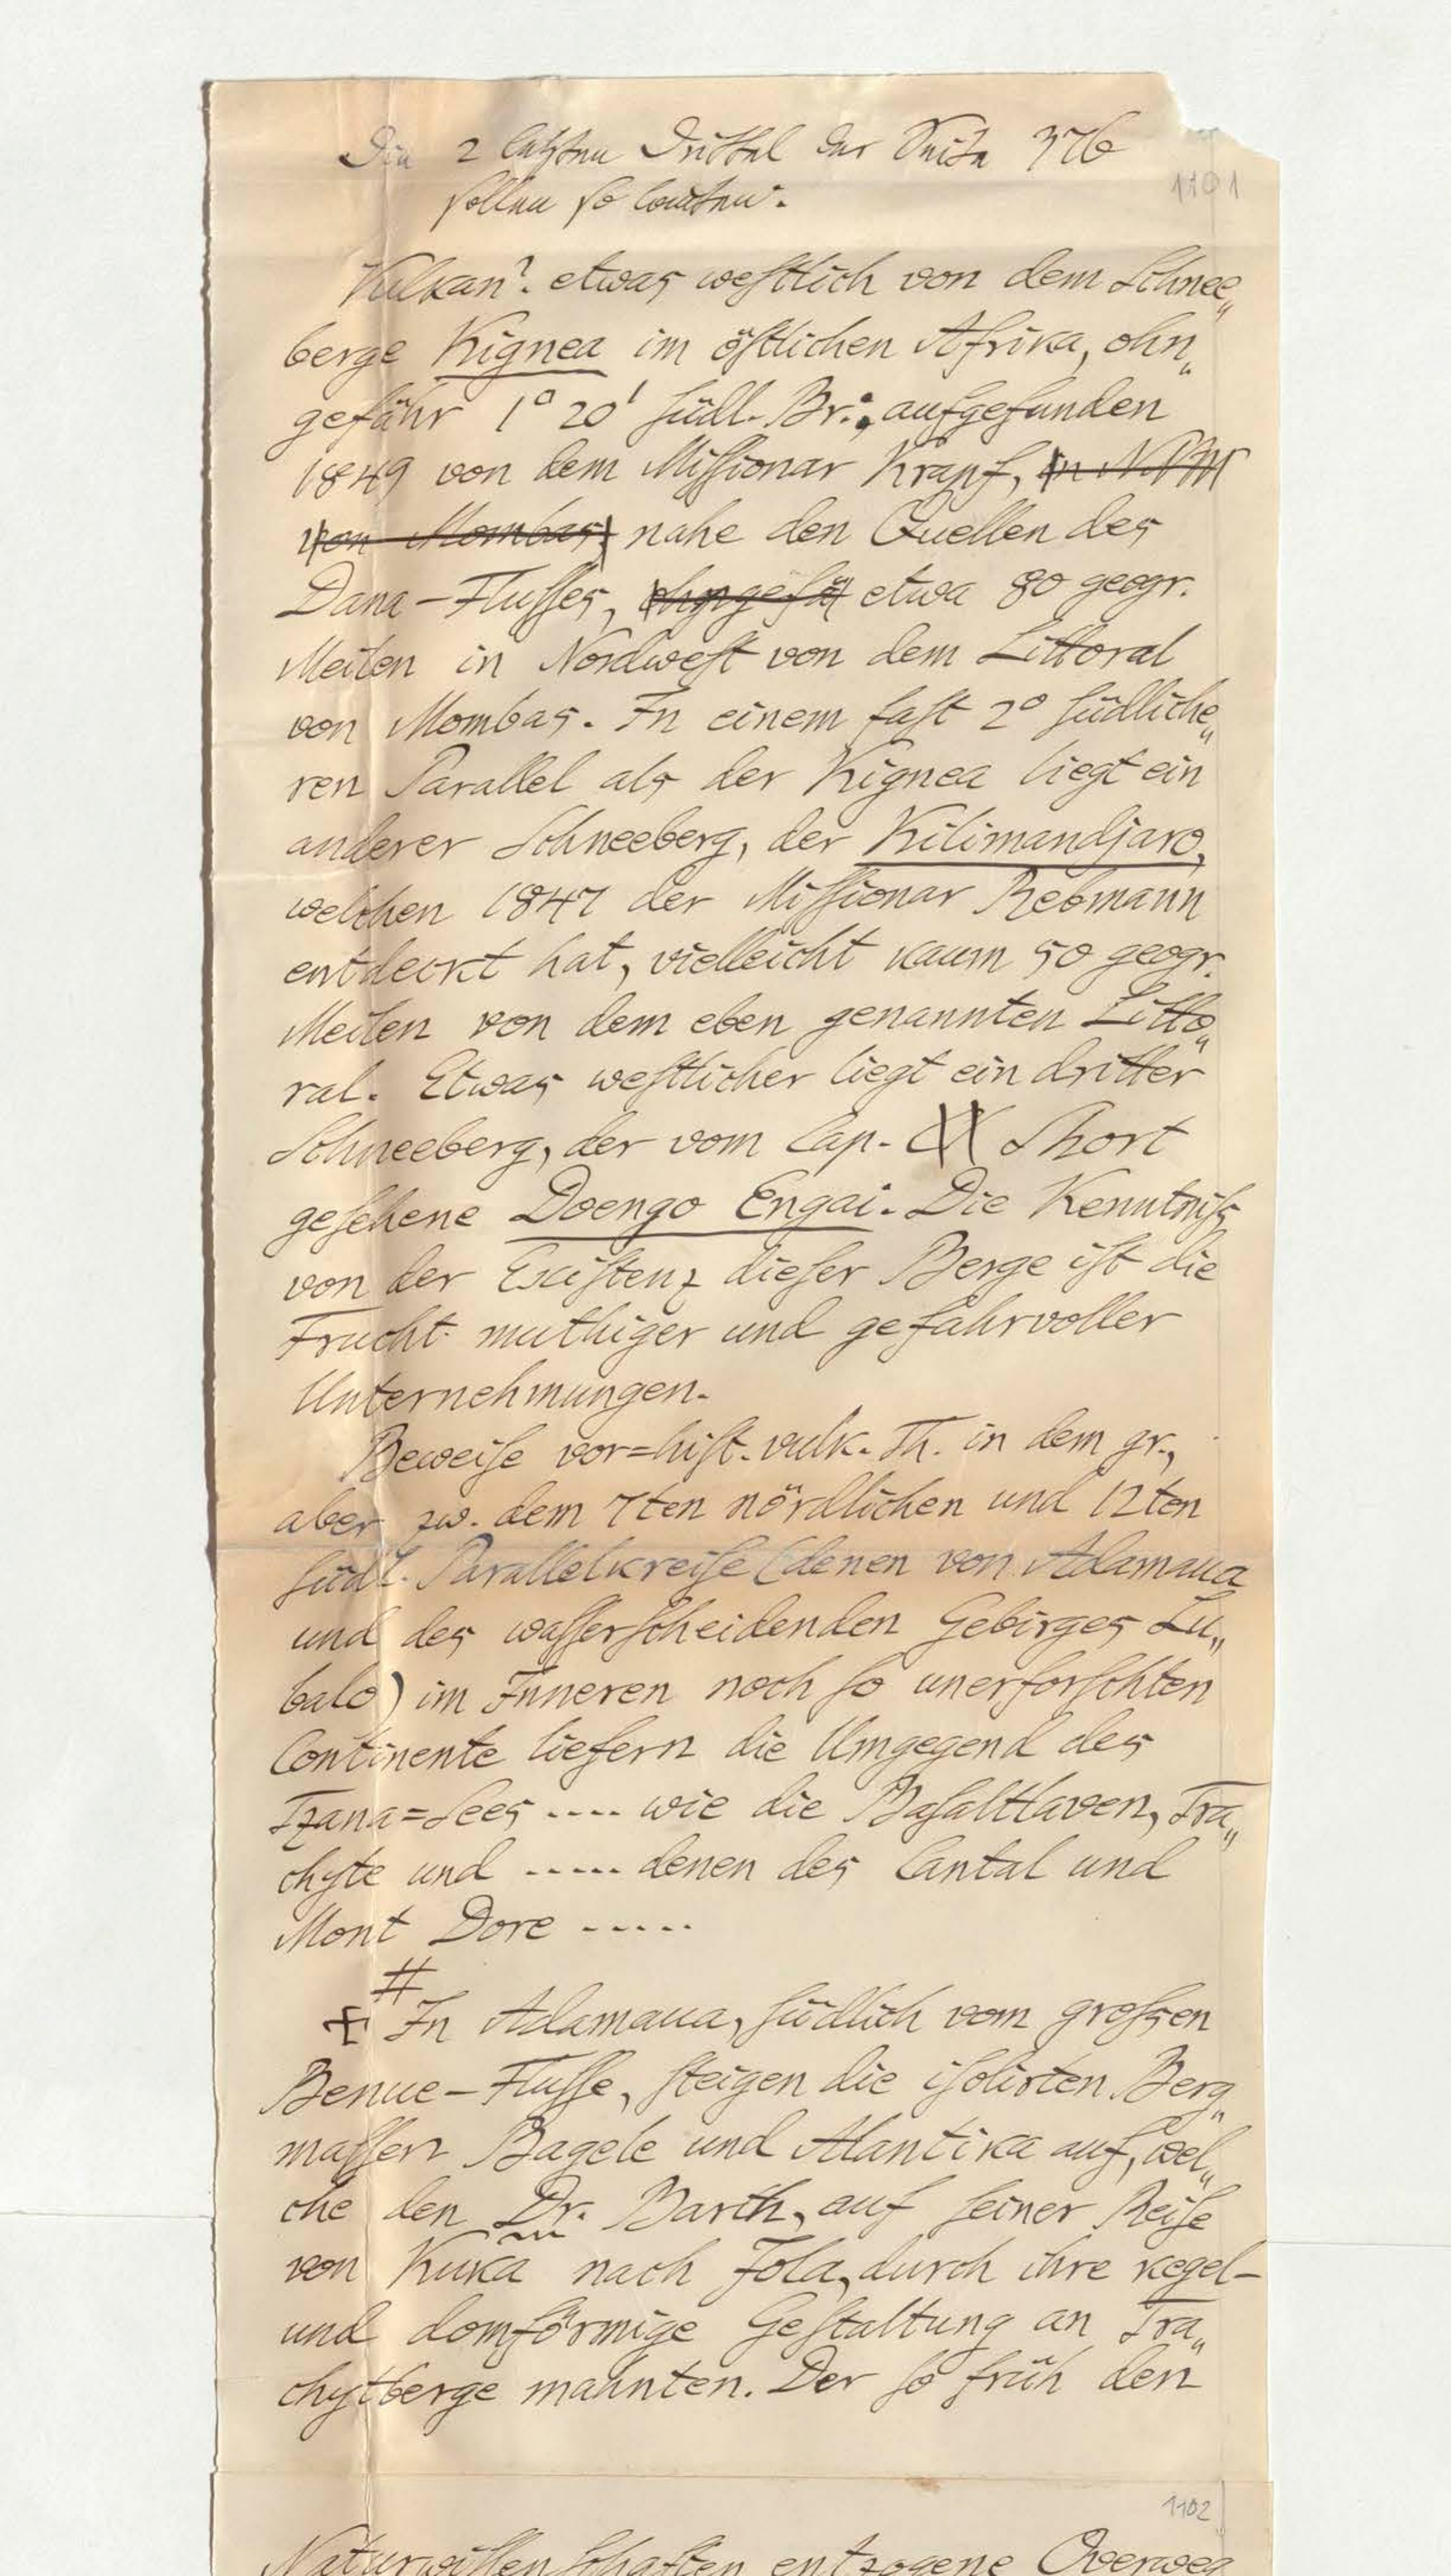 Die 2 letzten Drittel der Seite 376
1101
sollen so lauten.
Vulkan? etwas westlich von dem Schnee„
berge Kignea im östlichen Afrika, ohn„
gefähr 1° 20' südl. Br.; aufgefunden
1849 von dem Missionar Krapf, in NNW
von Mombas, nahe den Quellen des
Dana-Flusses, ohngefä etwa 80 geogr.
Meilen in Nordwest von dem Littoral
von Mombas. In einem fast 2° südliche„
ren Parallel als der Kignea liegt ein
anderer Schneeberg, der Kilimandjaro,
welchen 1847 der Missionar Rebmann
entdeckt hat, vielleicht kaum 50 geogr.
Meilen von dem eben genannten Litto„
ral. Etwas westlicher liegt ein dritter
Schneeberg, der vom Cap. Short
gesehene Doengo Engai. Die Kenntniß
von der Existenz dieser Berge ist die
Frucht muthiger und gefahrvoller
Unternehmungen.
Beweise vor=hist. vulk. Th. in dem gr.,
aber zw. dem 7ten nördlichen und 12ten
südl. Parallelkreise (denen von Adamaua
und des wasserscheidenden Gebirges Lu„
balo) im Inneren noch so unerforschten
Continente liefern die Umgegend des
Tzana=Sees .... wie die Basaltlaven, Tra„
chyte und ..... denen des Cantal und
Mont Dore .....
#
In Adamaua, südlich vom grossen
Benue-Flusse, steigen die isolirten Berg„
massen Bagele und Alantika auf, wel„
che den Dr. Barth, auf seiner Reise
von Kuka nach Jola, durch ihre kegel-
und domförmige Gestaltung an Tra„
chytberge mahnten. Der so früh den
1102
Naturwissenschaften entzogene Overweg